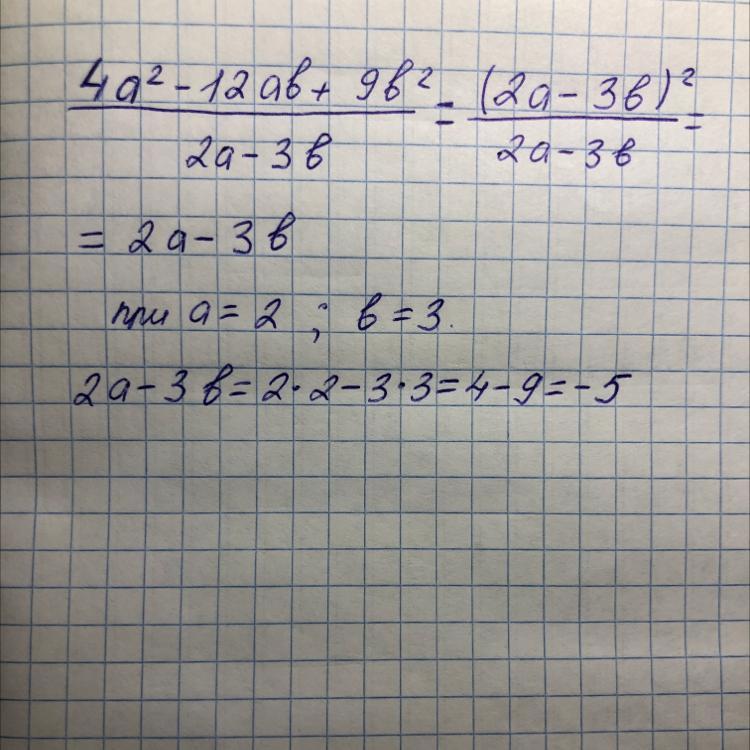 4a² - 12ab + 9b² / 2a - 3b = (2a - 3b)² / 2a - 3b =
= 2a - 3b
при a = 2 ; b = 3.
2a - 3b = 2·2 - 3·3 = 4 - 9 = -5